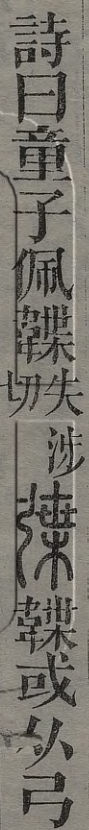 詩曰童子佩韘失涉切弽韘或从弓